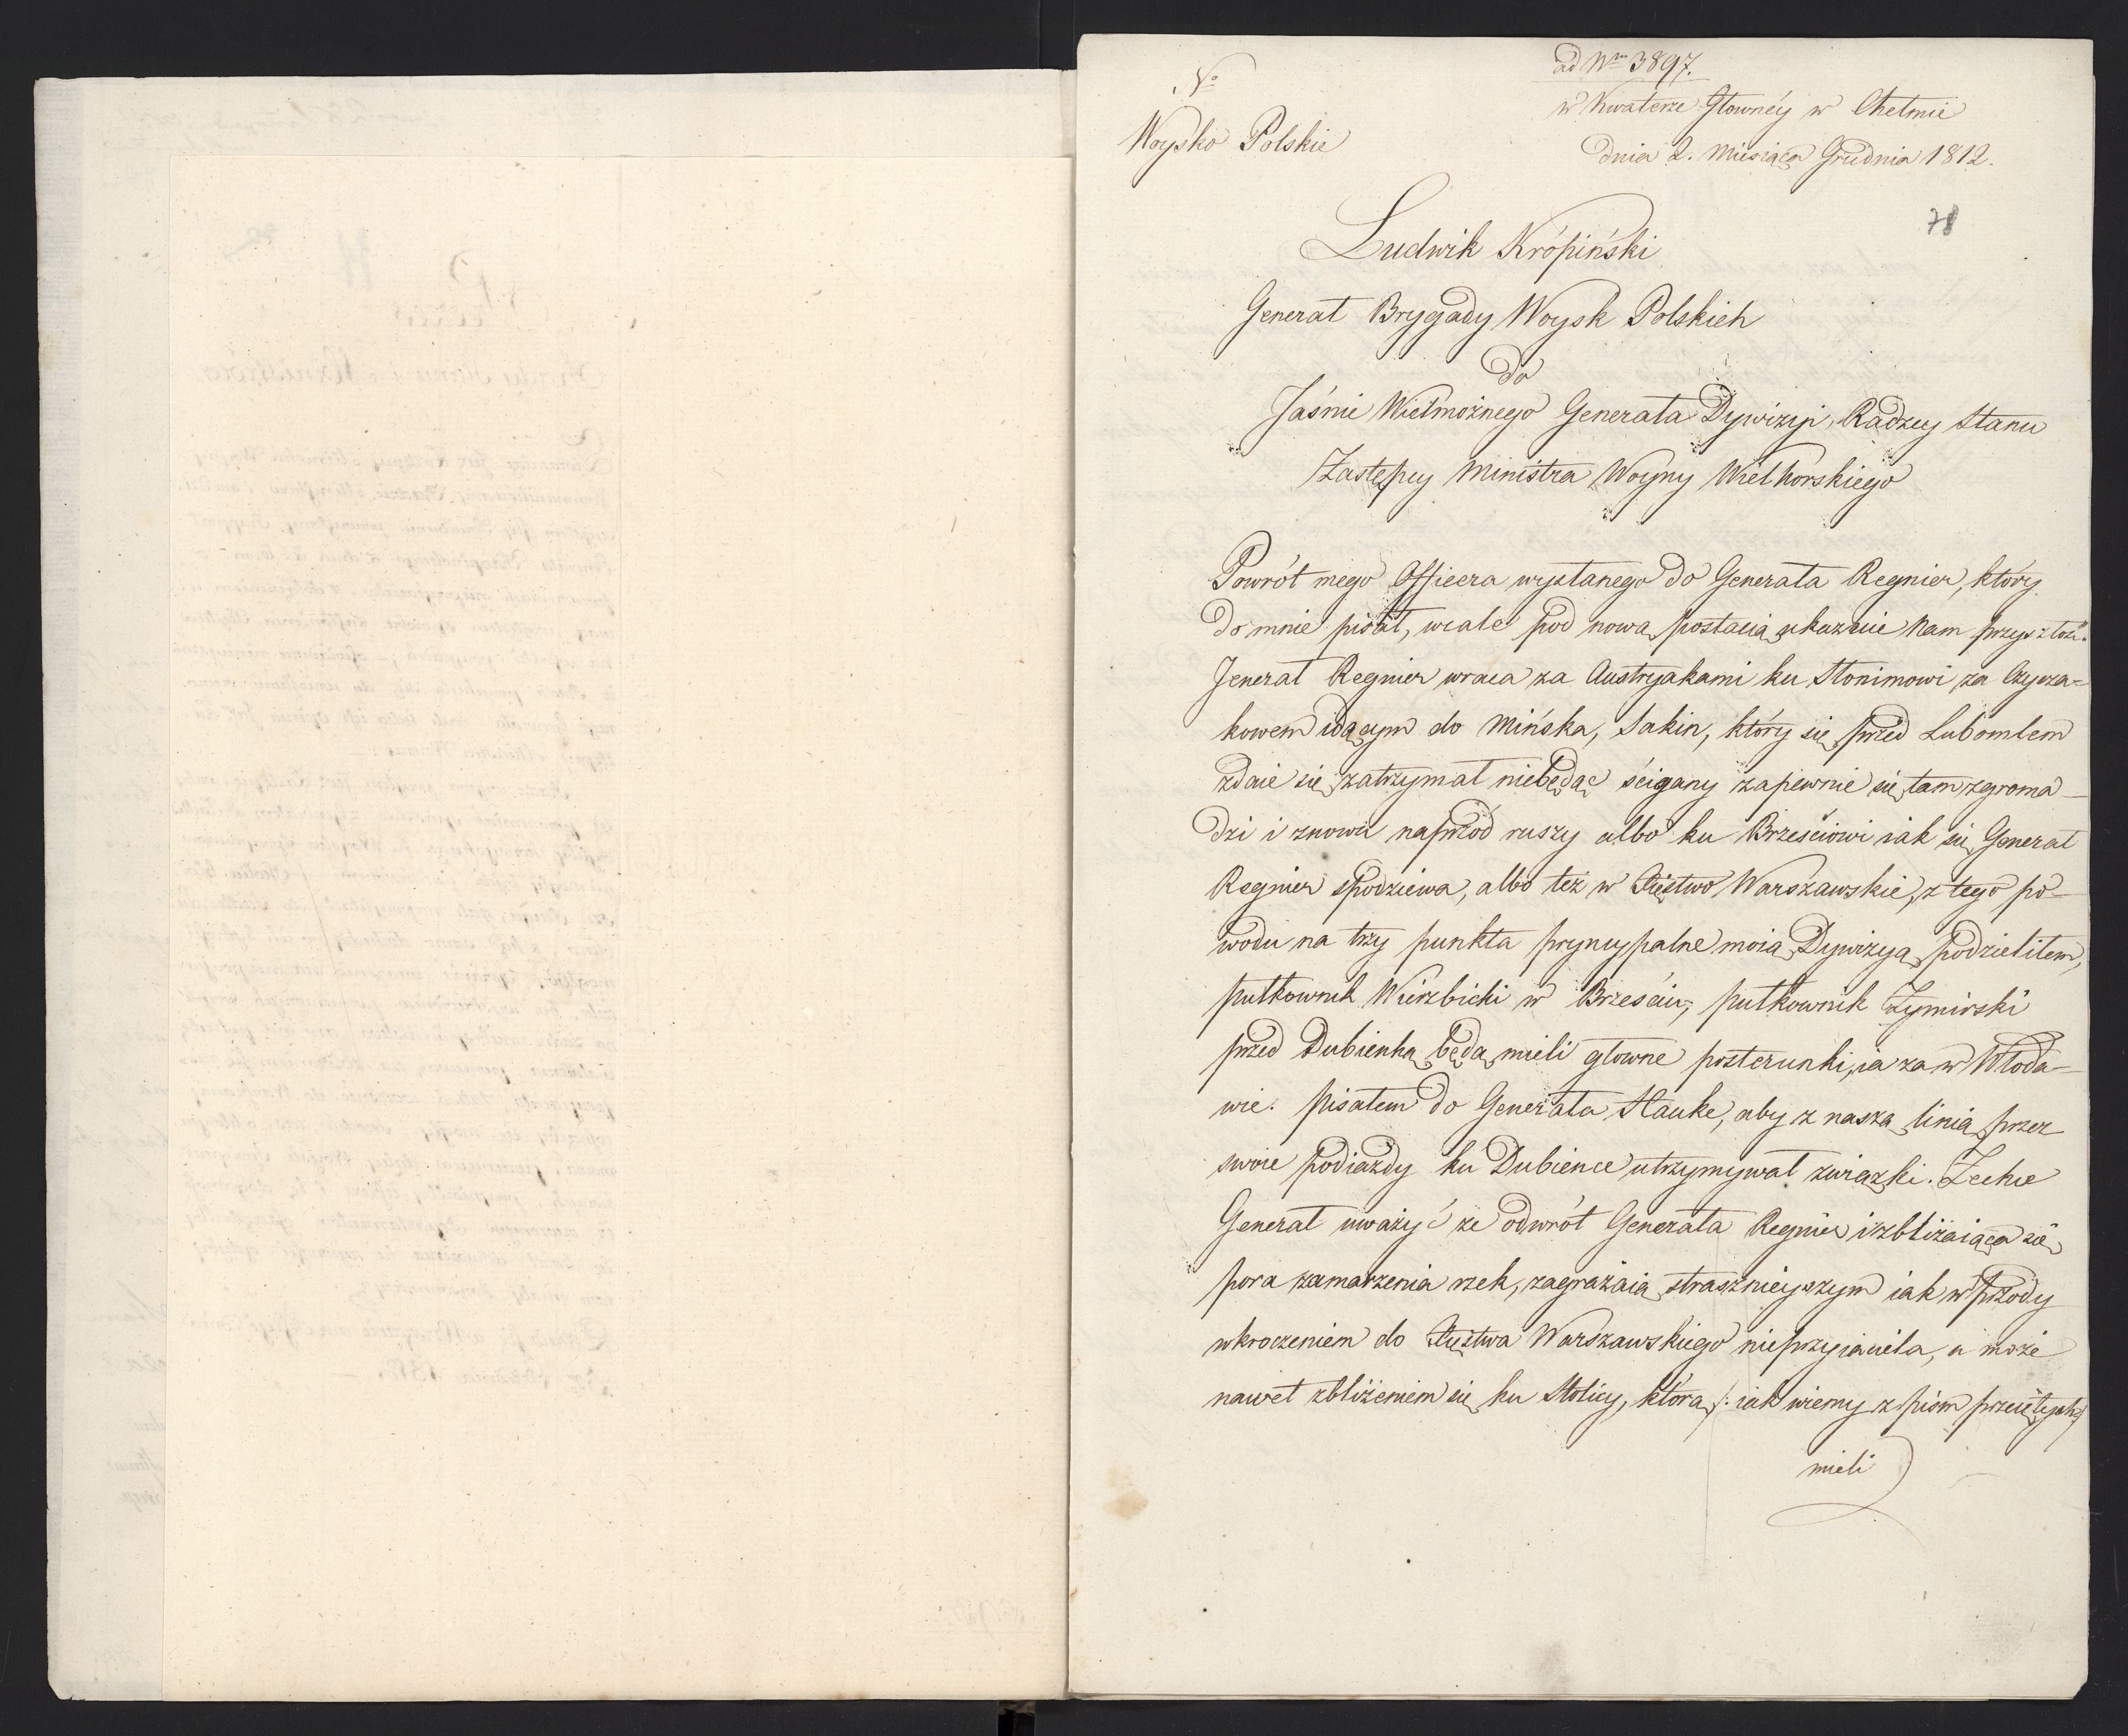 ad Nrm 3897.
No
w Kwaterze Głowney w Chełmie
Woysko Polskie
Dnia 2. Miesiąca Grudnia 1812.
78
Ludwik Krópiński
Generał Brygady Woysk Polskich
do
Jaśnie Wielmożnego Generała Dywizyi, Radzcy Stanu
Zastępcy Ministra Woyny Wielhorskiego
Powrót mego Officera wysłanego do Generała Regnier, który
do mnie pisał, wcale pod nową postacią ukazuie nam przyszłość.
Jenerał Regnier wraca za Austryakami ku Słonimowi za Czycza-
kowem idącym do Mińska, Sakin, który się przed Lubomlem
zdaie się zatrzymał niebędąc ścigany zapewnie się tam zgroma-
dzi i znowu naprzód ruszy albo ku Brześciowi iak się Generał
Regnier spodziewa, albo też w Xięstwo Warszawskie, z tego po-
wodu na trzy punkta pryncypalne moią Dywizyą podzieliłem,
pułkownik Wierzbicki w Brześciu, pułkownik Żymirski
przed Dubienką będą mieli głowne posterunki, ia zaw Włoda-
wie. pisałem do Generała Hauke, aby z naszą linią przez
swoie podiazdy ku Dubience utrzymywał związki. Zechce
Generał uważyć że odwrót Generała Regnier i zbliżaiąca się
pora zamarzenia rzek, zagrażaią strasznieyszym iak w przódy
wkroczeniem do Xięstwa Warszawskiego nieprzyiaciela, a może
nawet zbliżeniem się ku Stolicy, którą /: iak wiemy z pism przeiętych:/
mieli